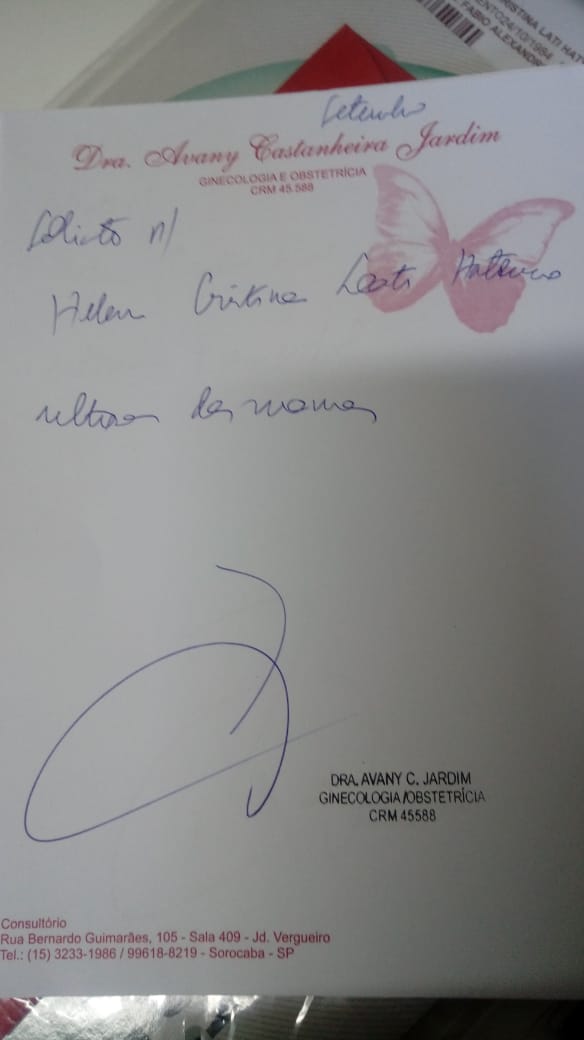 RISTINA LATI HAT
ENTO24/10/1984
FABIO ALEXANDR
Setembro
Dra. Avany Castanheira Jardim
GINECOLOGIA E OBSTETRÍCIA
CRM 45.588
Solicito p/
Helen Cristina Lati
ultrason das mamas
DRA. AVANY C. JARDIM
GINECOLOGIA/OBSTETRÍCIA
CRM 45588
Consultório
Rua Bernardo Guimarães, 105 - Sala 409 - Jd. Vergueiro
Tel.: (15) 3233-1986 / 99618-8219 - Sorocaba - SP